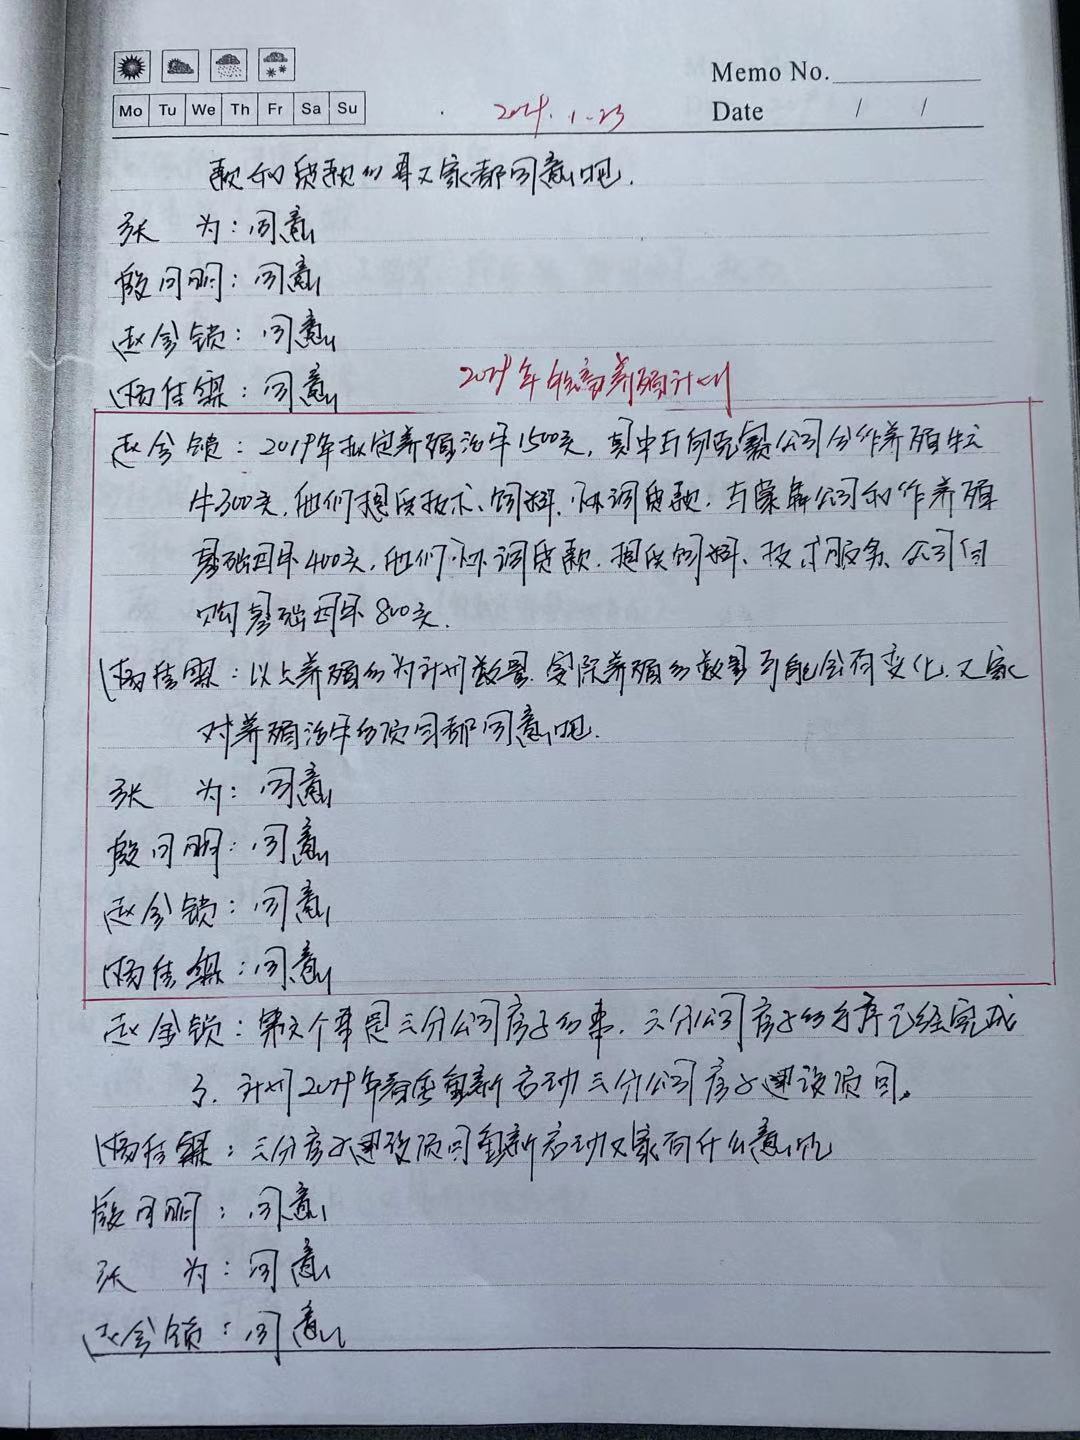 Memo No.
Mo Tu We Th Fr Sa Su
Date / /
2019.1.23
款和贷款的事大家都同意吧.
张 为：同意
殷月明：同意
赵金锁：同意
杨佳霖：同意
2019年牲畜养殖计划
赵金锁：2019年拟定养殖活牛1500头，其中与伊克赛公司合作养殖牛
牛300头，他们提供技术、饲料、协调贷款，与蒙犇公司和作养殖
基础母牛400头，他们协调贷款、提供饲料、技术服务，公司自
购基础母牛800头.
杨佳霖：以上养殖的为计划数量，实际养殖的数量可能会有变化，大家
对养殖活牛的项目都同意吧.
张 为：同意
殷月明：同意
赵金锁：同意
杨佳霖：同意
赵金锁：第六个事是三分公司房子的事，三分公司房子的手序已经完成
了，计划2019年春季重新启动三分公司房子建设项目。
杨佳霖：三分房子建设项目重新启动大家有什么意见
殷月明：同意
张 为：同意
赵金锁：同意